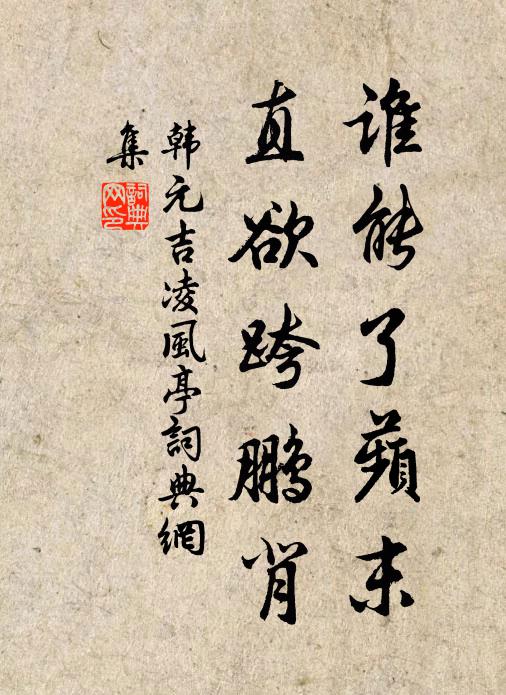 誰能了蘋末
直欲跨鵬背
韩元吉凌風亭詞典網
集
詞典网印